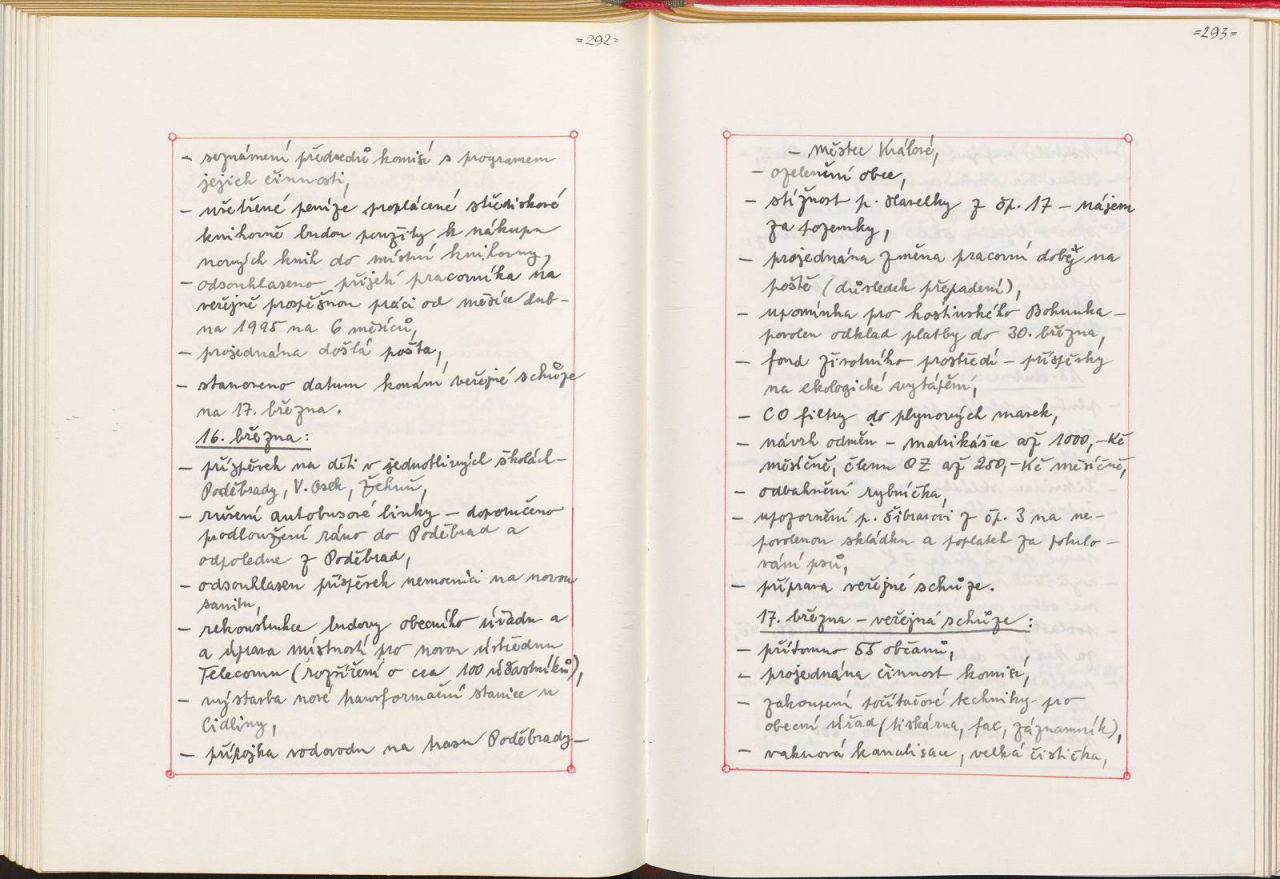 =292=
– seznámení předsedů komisí s programem
jejich činnosti,
– ušetřené peníze proplácené střediskové
knihovně budou použity k nákupu
nových knih do místní knihovny,
– odsouhlaseno přijetí pracovníka na
veřejně prospěšnou práci od měsíce dub-
na 1995 na 6 měsíců,
– projednána došlá pošta,
– stanoveno datum konání veřejné schůze
na 17. března.
16. března:
– příspěvek na děti v jednotlivých školách–
Poděbrady, V. Osek, Žehuň,
– rušení autobusové linky – doporučeno
prodloužení ráno do Poděbrad a
odpoledne z Poděbrad,
– odsouhlasen příspěvek nemocnici na novou
sanitu,
– rekonstrukce budovy obecního úřadu a
a úprava místností pro novou ústřednu
Telecomu (rozšíření o cca 100 účastníků),
– výstavba nové transformační stanice u
Cidliny,
– přípojka vodovodu na trasu Poděbrady–
=293=
– Městec Králové,
– ozelenění obce,
– stížnost p. Slavelky z čp. 17 – nájem
za pozemky,
– projednána změna pracovní doby na
poště (důsledek přepadení),
– upomínka pro hostinského Bohunka –
povolen odklad platby do 30. března,
– fond životního prostředí – příspěvky
na ekologické vytápění,
– CO filtry do plynových masek,
– návrh odměn – matrikářce až 1000,-Kč
měsíčně, členu OZ až 250,-Kč měsíčně,
– odbahnění rybníčka,
– upozornění p. Šibravovi z čp. 3 na ne-
povolenou skládku a poplatek za potulo-
vání psů,
– příprava veřejné schůze.
17. března – veřejná schůze:
– přítomno 55 občanů,
– projednána činnost komise,
– zakoupení počítačové techniky pro
obecní úřad (tiskárna, fax, záznamník),
– vakuová kanalisace, velká čistička,